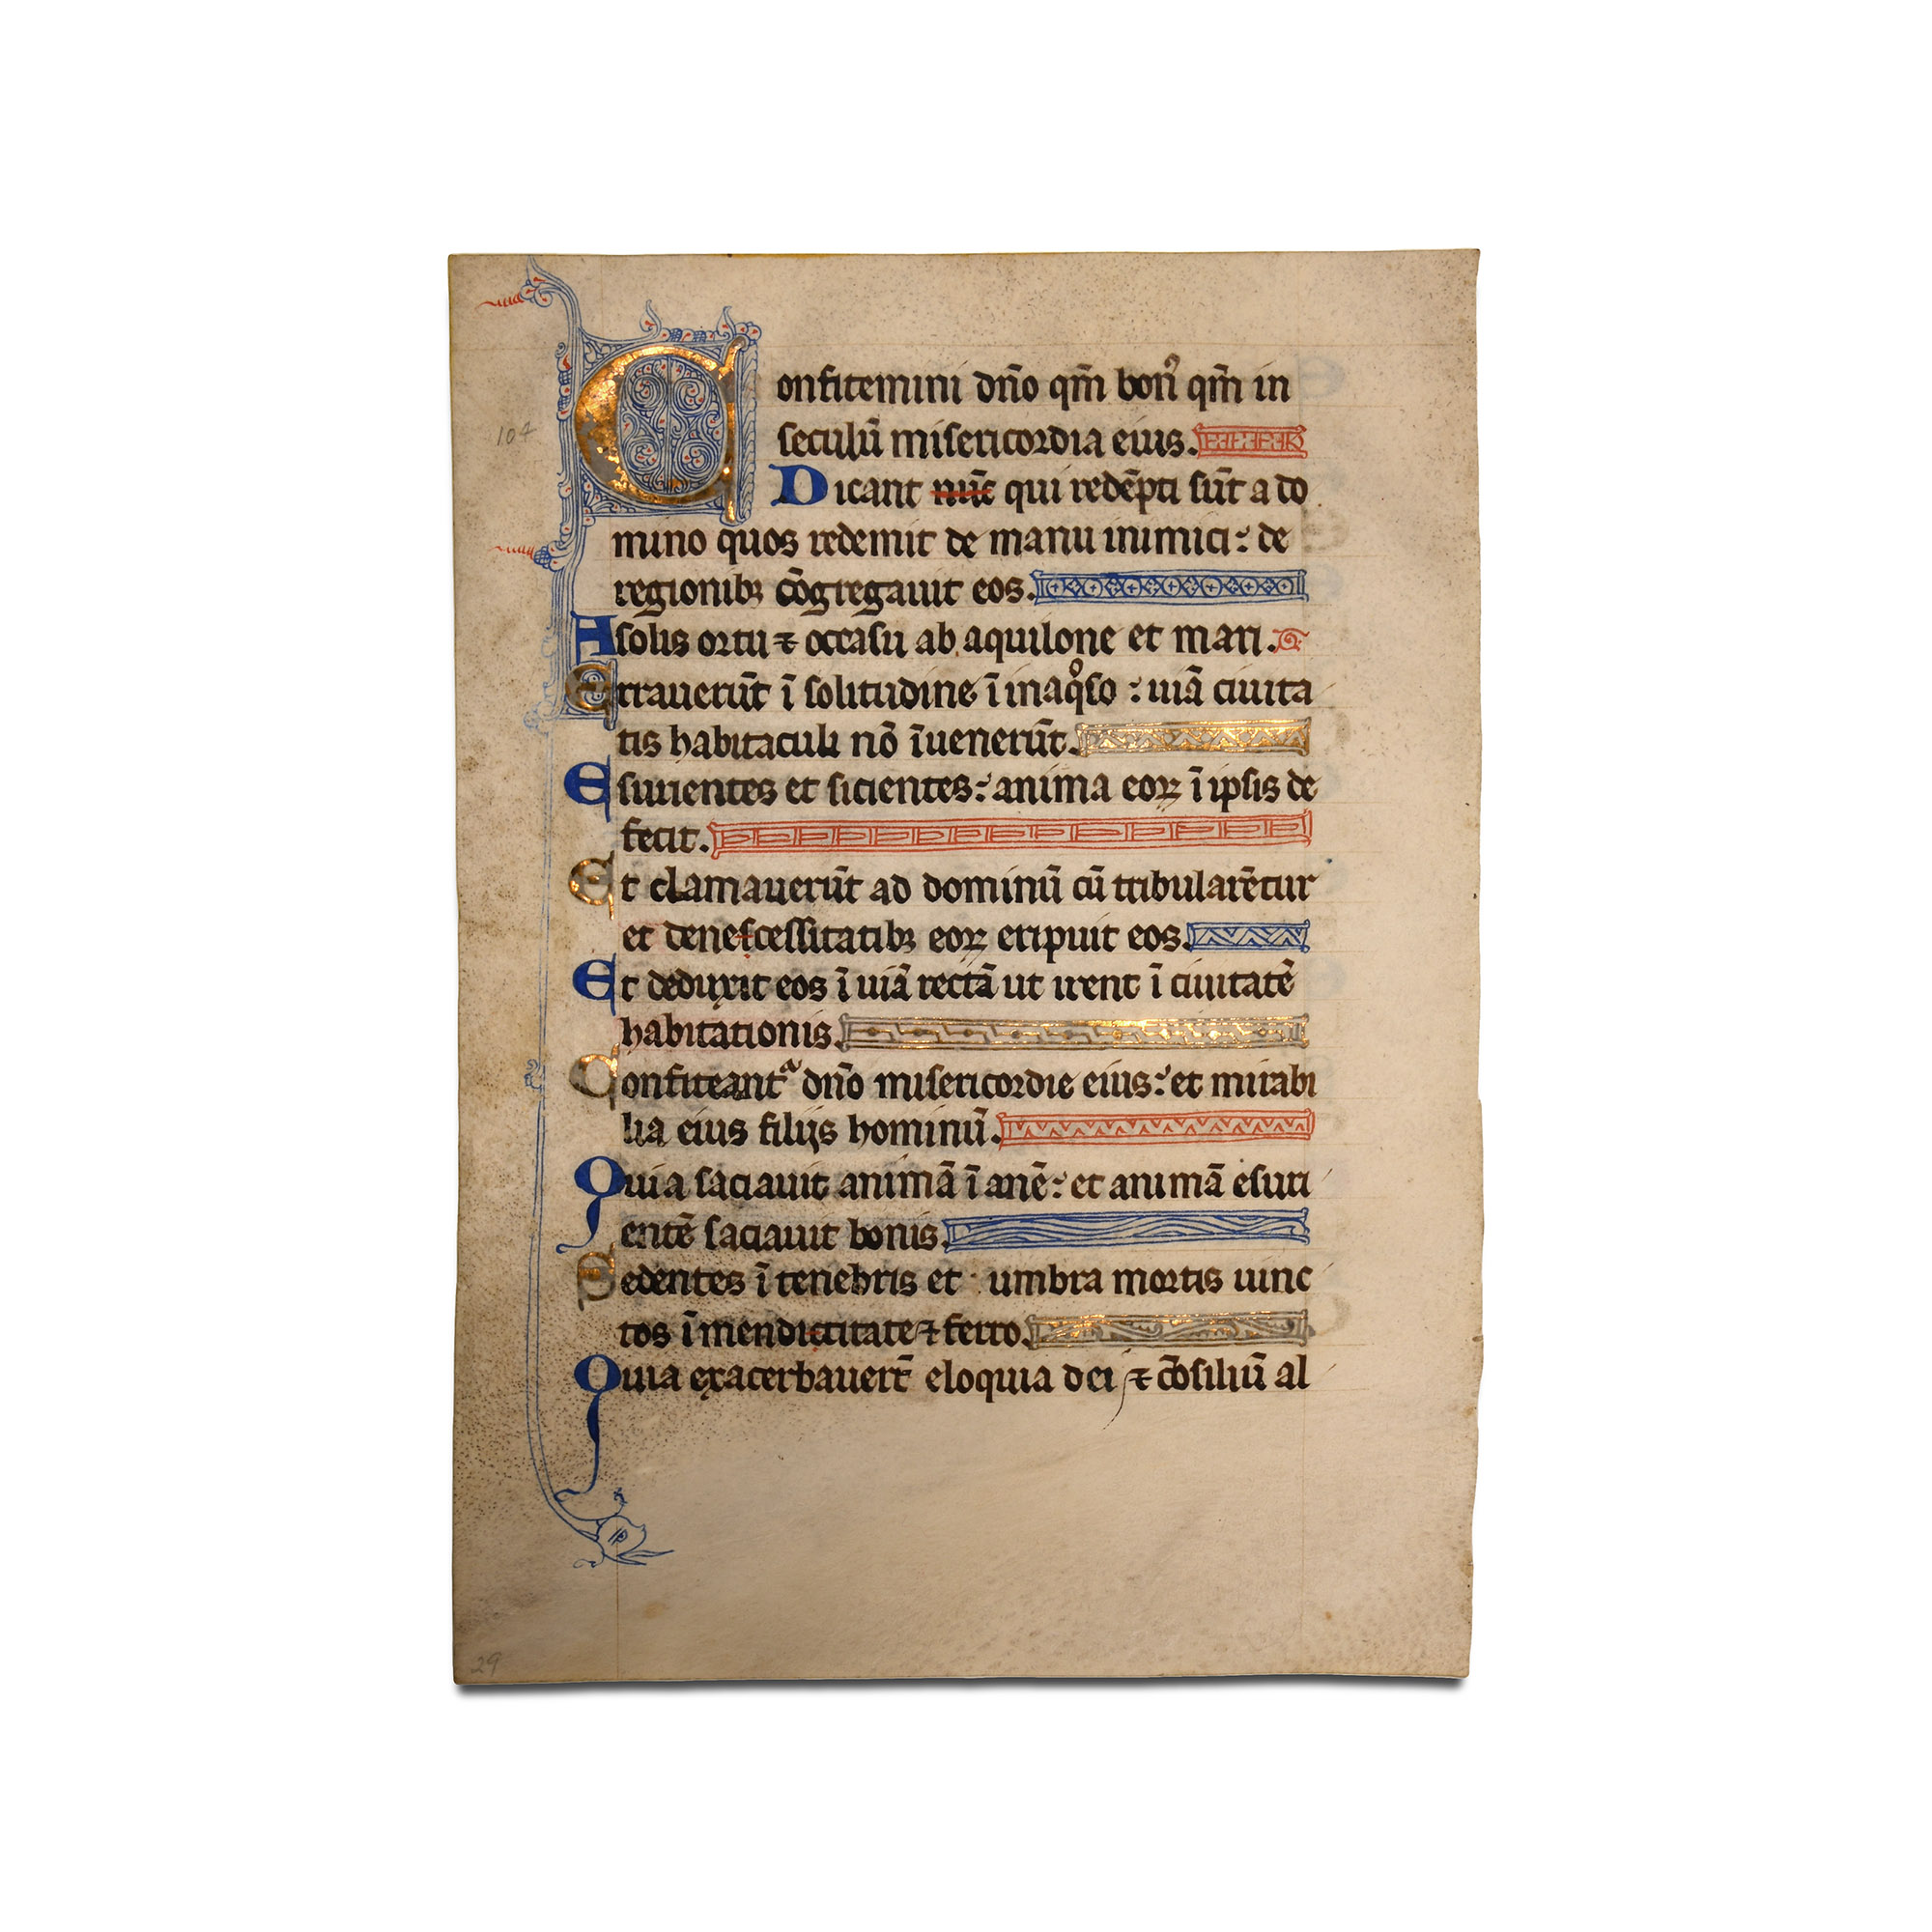 Confitemini dño qm̄ bon᷒ qm̄ in
seculū misericordia eius.
Dicant nūc qui redēpti sūt a do
mino quos redemit de manu inimici: de
regionibꝫ cōgregauit eos.
A solis ortu ⁊ occasu ab aquilone et mari.
Errauerūt ī solitudine ī inaqͦso : uiā ciuita
tis habitaculi nō īuenerūt.
Esurientes et sicientes: anima eoꝝ ī ipsis de
fecit.
Et clamauerūt ad dominū cū tribularētur
et denefcessitatibꝫ eoꝝ eripuit eos.
Et deduxit eos ī uiā rectā ut irent ī ciuitatē
habitationis.
Confiteantᷓ dño misericordie eius: et mirabi
lia eius filijs hominū.
Quia saciauit animā ī anē: et animā esuri
entē saciauit bonis.
Sedentes ī tenebris et umbra mortis uinc
tos ī mendicitate ⁊ ferro.
Quia exacerbauert̄ eloquia dei ⁊ cōsiliū al
29